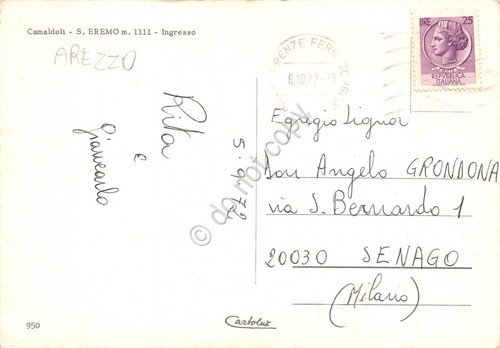 Camaldoli - S. EREMO m. 1111 - Ingresso
AREZZO
Rita
e
Giancarlo
5.9.72
LIRE 25
REPVBBLICA
ITALIANA
6.10.72-23
Egregio Signor
Don Angelo GRONDONA
via S. Bernardo 1
20030 SENAGO
(Milano)
950
Cartolux
© do not copy